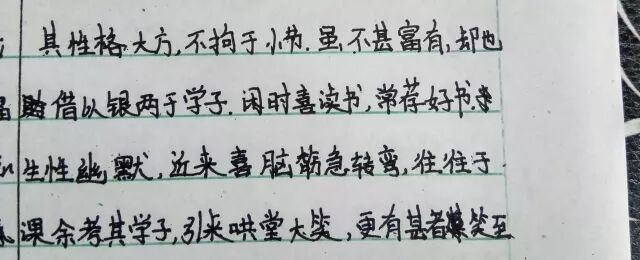 其性格大方,不拘于小节.虽不甚富有,却也
借以银两于学子.闲时喜读书,常荐好书
生性幽默,近来喜脑筋急转弯,往往于
课余考其学子,引来哄堂大笑,更有甚者爆笑至